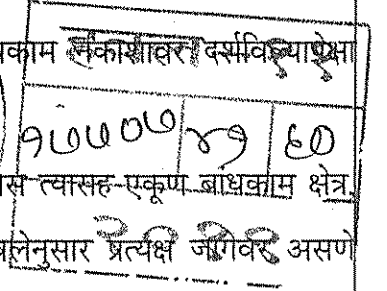 काम नकाशावर दर्शविल्यापेक्षा
१७५०७ ४१ ६०
स त्यासह एकूण बांधकाम क्षेत्र.
नुसार प्रत्यक्ष जागेवर असणे